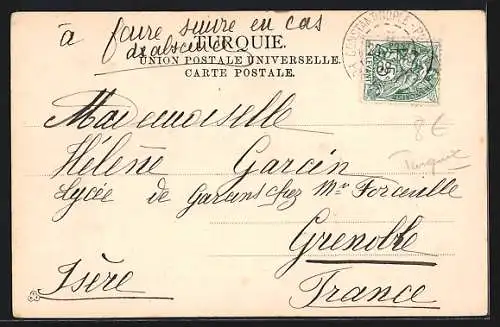 à faire suivre en cas
d'absence
TURQUIE.
UNION POSTALE UNIVERSELLE.
CARTE POSTALE.
CONSTANTINOPLE
LEVANT
5
8€
Turquie
Mademoiselle
Hélène Garcin
Lycée de Garçons chez Mr Forceville
Grenoble
Isère France